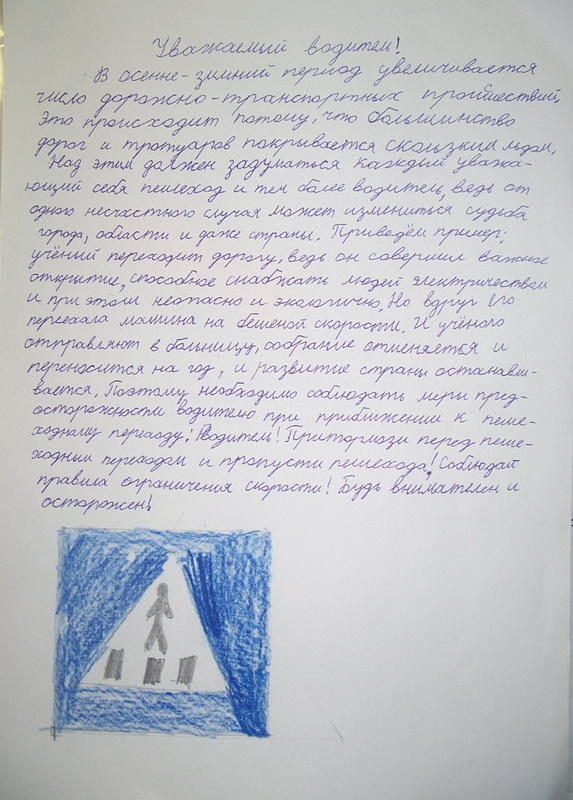 Уважаемый водитель!
В осенне-зимний период увеличивается
число дорожно-транспортных происшествий,
это происходит потому, что большинство
дорог и тротуаров покрывается скользким льдом.
Над этим должен задуматься каждый уважа-
ющий себя пешеход и тем более водитель, ведь от
одного несчастного случая может измениться судьба
города, области и даже страны. Приведём пример:
учёный переходит дорогу, ведь он совершил важное
открытие, способное снабжать людей электричеством
и при этом неопасно и экологично. Но вдруг его
переехала машина на бешеной скорости. И учёного
отправляют в больницу, собрание отменяется и
переносится на год, и развитие страны останавли-
вается. Поэтому необходимо соблюдать меры пред-
осторожности водителю при приближении к пеше-
ходному переходу: Водитель! Притормози перед пеше-
ходным переходом и пропусти пешехода! Соблюдай
правила ограничения скорости! Будь внимателен и
осторожен!